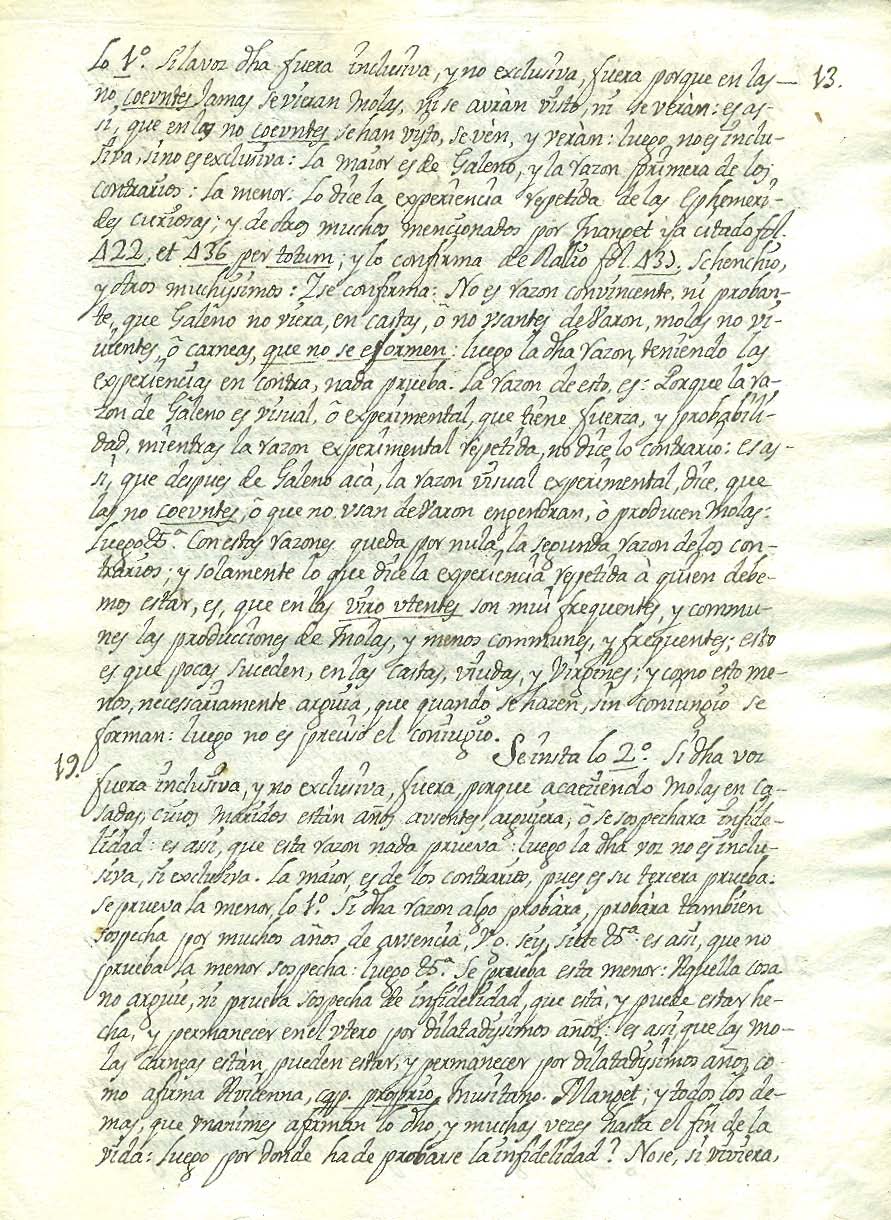 Lo 1º. Si la voz dha fuera inclusiva, y no exclusiva, fuera porque en las — 13.
no coeuntes Jamas se vieran Molas, ni se avràn visto, ni se veràn: es as-
si, que en las no coeuntes se han visto, se vèn, y veràn: luego no es inclu-
siva, sino es exclusiva: La maior es de Galeno, y la razon primera de los
contrarios: La menor: Lo dice la experiencia repetida de las Ephemeri-
des curiosas; y de otros muchos mencionados por Manget ya citado fol.
422, et 436 per totum; y lo confirma de Ralio fol. 433. Schenchio,
y otros muchissimos: Y se confirma: No es razon convincente, ni proban-
te, que Galeno no viera, en castas, ô no usantes de Varon, molas no vi-
vientes, ô carneas, que no se eformen: luego la dha razon, teniendo las
experiencias en contra, nada prueba. La razon de esto, es: Porque la ra-
zon de Galeno es visual, ô experimental, que tiene fuerza, y probabili-
dad, mientras la razon experimental repetida, no dice lo contrario: es as-
si, que despues de Galeno acà, la razon visual experimental, dice, que
las no coeuntes, ô que no usan de Varon engendran, ò producen Molas:
Luego &ª. Con estas razones queda por nula, la segunda razon de los con-
trarios; y solamente lo que dice la experiencia repetida à quien debe-
mos estar, es, que en las viro utentes son mui frequentes, y commu-
nes las producciones de Molas, y menos communes, y frequentes; esto
es que pocas suceden, en las Castas, viudas, y Virgines; y como esto me-
nos, necessariamente arguia, que quando se hazen, sin coniungio se
forman: luego no es preciso el coniugio.
19. Se insta lo 2º. Si dha voz
fuera inclusiva, y no exclusiva, fuera, porque acaeciendo Molas en Ca-
sadas, cuios Maridos estàn años ausentes, arguiera, ô se sospechara infide-
lidad: es assi, que esta razon nada prueva: luego la dha voz no es inclu-
siva, si exclusiva. La maior, es de los contrarios, pues es su tercera prueba.
Se prueva la menor, lo 1º. Si dha razon algo probàra, probàra tambien
sospecha por muchos años de ausencia, V.o. seis, siete &ª. es assi, que no
prueba la menor sospecha: luego &ª. Se prueba esta menor: Aquella cosa
no arguie, ni prueba sospecha de infidelidad, que està, y puede estar he-
cha, y permanecer en el utero por dilatadissimos años: es assi que las Mo-
las carneas estàn, pueden estar, y permanecer por dilatadissimos años, co-
mo afirma Avicenna, cap. proprio, Musitano. Manget; y todos los de-
mas, que unanimes afirman lo dho, y muchas vezes hasta el fin de la
vida: luego por donde ha de probarse la infidelidad? No se, si viviera,